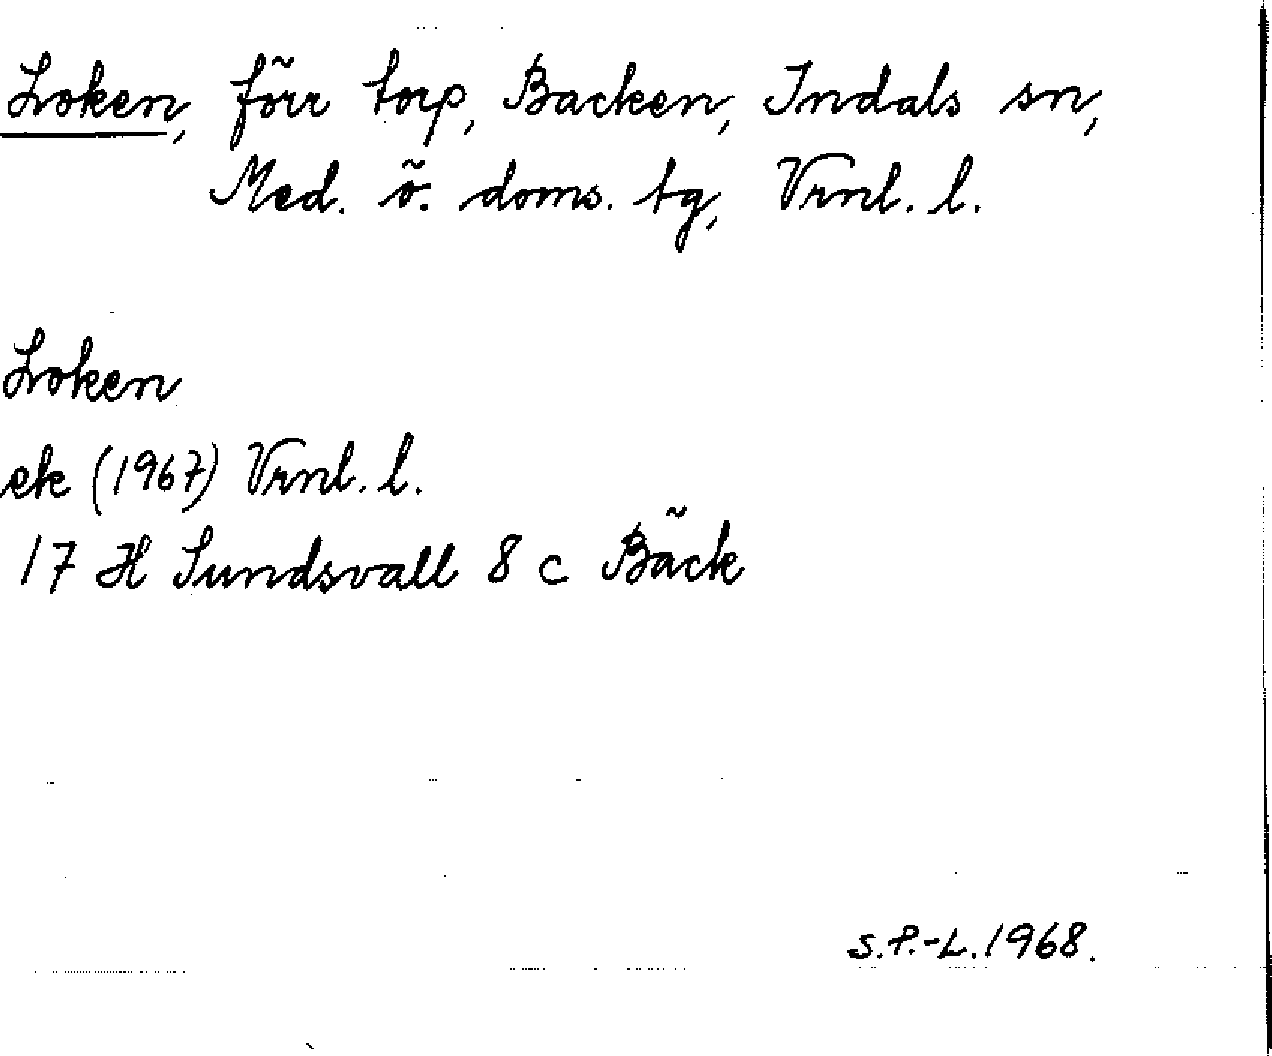 Loken, förr torp, Backen, Indals sn,
Med. ö. doms. tg, Vrnl. l.
Loken
ek (1967) Vrnl. l.
17 H Sundsvall 8 c Bäck
S.P.-L. 1968.